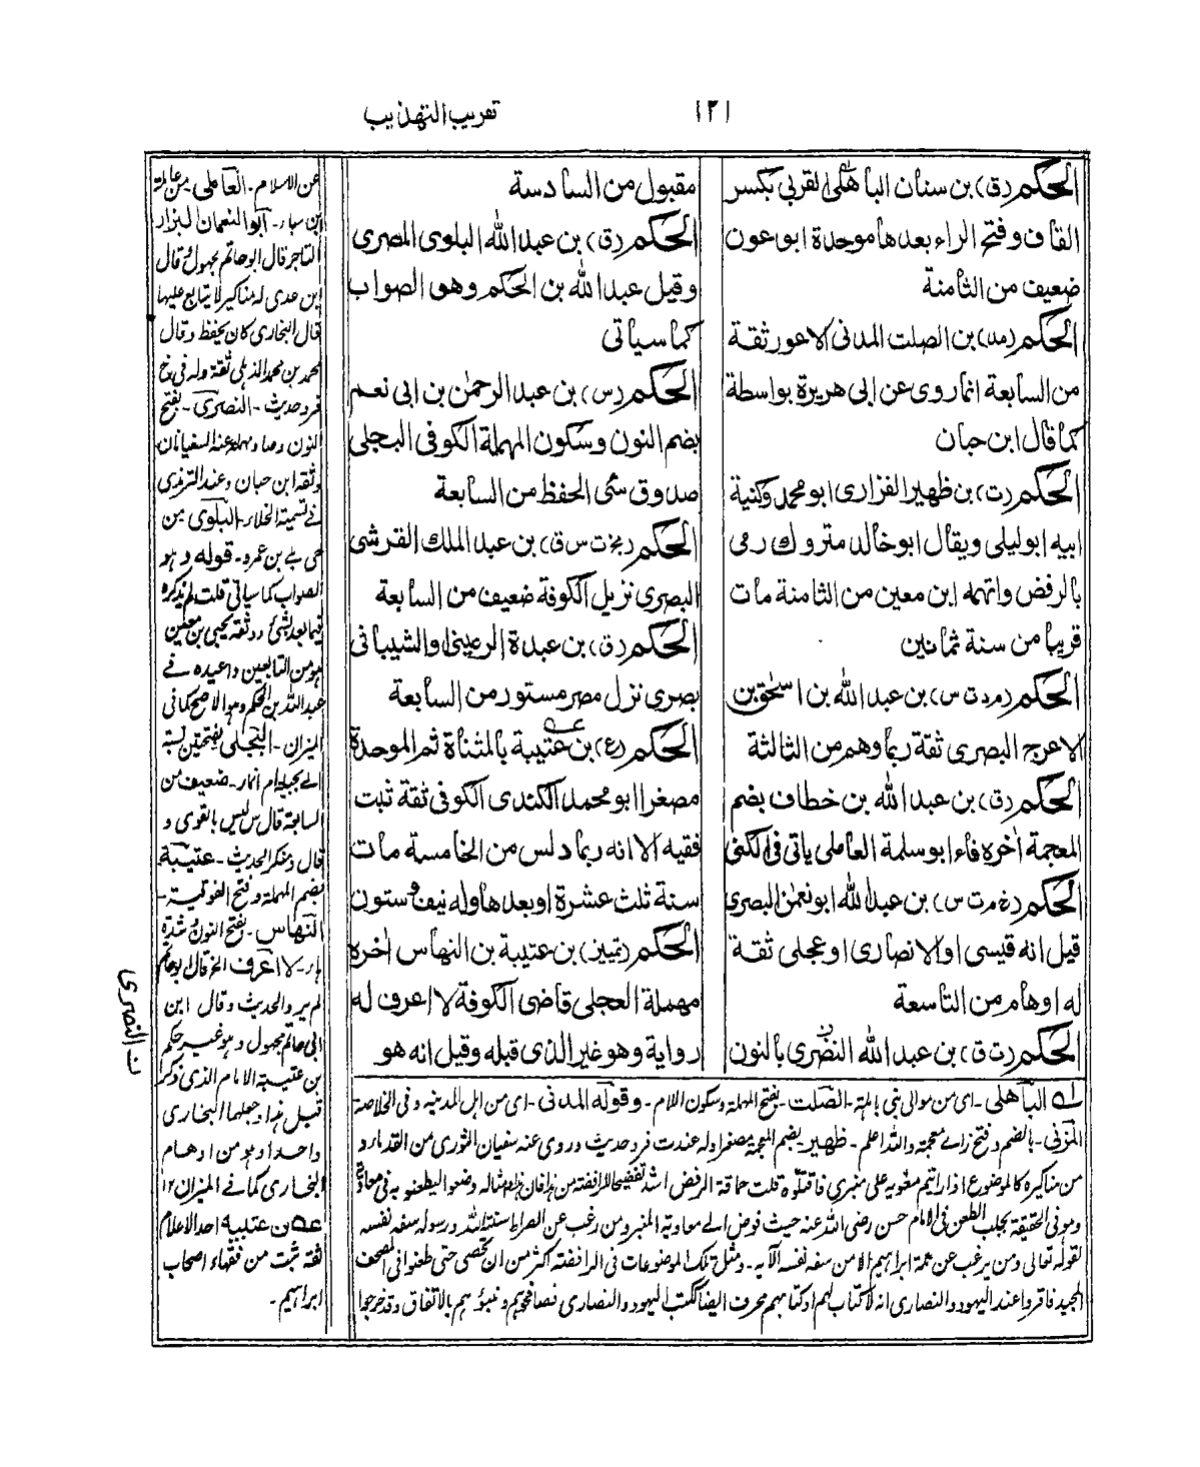 ١٢١
تقريب التهذيب
الحكم (ق) بن سنان الباهلى القربى بكسر
القاف وفتح الراء بعدها موحدة ابو عون
ضعيف من الثامنة
الحكم (مد) بن الصلت المدنى الاعور ثقة
من السابعة انما روى عن ابى هريرة بواسطة
كما قال ابن حبان
الحكم (ت) بن ظهير الفزارى ابو محمد وكنية
ابيه ابو ليلى ويقال ابو خالد متروك رمى
بالرفض واتهمه ابن معين من الثامنة مات
قريبا من سنة ثمانين
الحكم (م د ت س) بن عبد الله بن اسحٰق بن
الاعرج البصرى ثقة ربما وهم من الثالثة
الحكم (ق) بن عبد الله بن خطاف بضم
المعجمة اٰخره فاء ابو سلمة العاملى ياتى فى الكنى
الحكم (خ م ت س) بن عبد الله ابو نعمٰن البصرى
قيل انه قيسى او الانصارى او عجلى ثقة
له اوهام من التاسعة
الحكم (ت ق) بن عبد الله النضرى بالنون
مقبول من السادسة
الحكم (ق) بن عبد الله البلوى المصرى
وقيل عبد الله بن الحكم وهو الصواب
كما سياتى
الحكم (س) بن عبد الرحمٰن بن ابى نعم
بضم النون وسكون المهملة الكوفى البجلى
صدوق سئ الحفظ من السابعة
الحكم (بخ ت س ق) بن عبد الملك القرشى
البصرى نزيل الكوفة ضعيف من السابعة
الحكم (ق) بن عبدة الرعينى او الشيبانى
بصرى نزل مصر مستور من السابعة
الحكم (ع) بن عتيبة بالمثناة ثم الموحدة
مصغرا ابو محمد الكندى الكوفى ثقة ثبت
فقيه الا انه ربما دلس من الخامسة مات
سنة ثلث عشرة او بعدها وله نيف وستون
الحكم (تمييز) بن عتيبة بن النهاس اٰخره
مهملة العجلى قاضى الكوفة لا اعرف له
رواية وهو غير الذى قبله وقيل انه هو
له الباهلى - اى من موالى بنى باهلة - الصلت - بفتح المهملة وسكون اللام - وقوله المدنى - اى من اهل المدينه وفى الخلاصة
المزنى - بالضم وفتح زاے معجمة والله اعلم - ظهير - بضم المعجمة مصغرا وله عند ت فرد حديث وروى عنه سفيان الثورى من القدماء و
من مناكيره كالموضوع اذا رايتم معٰوية على منبرى فاقتلوه قلت حماقة الرفض اشد تفضيحا للرافضة من
ومو فى الحقيقة يجلب الطعن فى الامام حسن رضى الله عنه حيث فوض الے معاوية المنبر ومن رغب عن الصراط سنة الله ورسوله سفه نفسه
لقوله تعالى ومن يرغب عن ملة ابراهيم الا من سفه نفسه الآيه - ومثل تلك الموضوعات فى الرافضة اكثر من ان تحصى حتى طعنوا فى المصحف
المجيد فاقروا عند اليهود والنصارى انه لا كتاب لهم او كتابهم محرف ايضا ككتب اليهود والنصارى
عن الاسلام - العاملى - من عاملة
ابن سباء - ابو النعمان البزار
التاجر قال ابو حاتم مجهول وقال
ابن عدى له مناكير لا يتابع عليها
قال البخارى كان يحفظ وقال
محمد بن محمد الذهلى ثقة وله فى خ
فرد حديث - النصرى - بفتح
النون وصاد مهملة عنه السفيانان
وثقه ابن حبان وعند الترمذى
فے تسمية الخلاء - البلوى من
حى بے بن عمرو - قوله وهو
الصواب كما سياتى قلت لم يذكره
فيما بعد لشئ ووثقه يحيى بن معين
هو من التابعين واعيده فے
عبد الله بن الحكم وهو الاصح كما فى
الميزان - البجلى بفتحتين نسبة
الے بجيلة ام انمار - ضعيف من
السابعة قال س ليس بالقوى و
قال د منكر الحديث - عتيبة
بضم المهملة وفتح الفوقية -
النهاس - بفتح النون وشدة
هاء - لا اعرف الخ قال ابو حاتم
لم يرو الحديث وقال ابن
ابى حاتم مجهول وهو غير حكم
بن عتيبة الامام الذى ذكر
قبل هذا وجعلهما البخارى
واحدا وهو من اوهام
البخارى كما فے الميزان ١٢
عه بن عتيبة احد الاعلام
ثقة ثبت من فقهاء اصحاب
ابراهيم -
ن النصرى